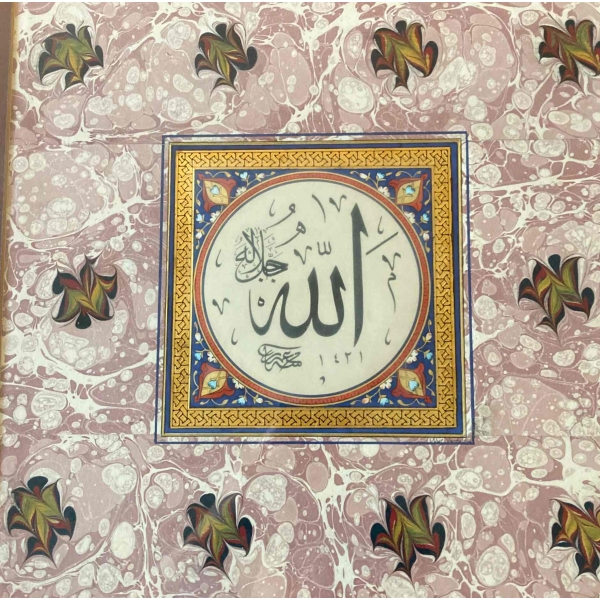 الله
جل جلاله
١٤٢١